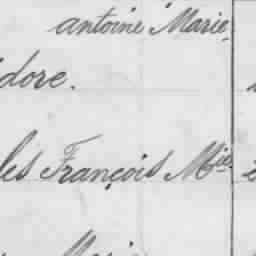 antoine Marie
dore.
les François Mie